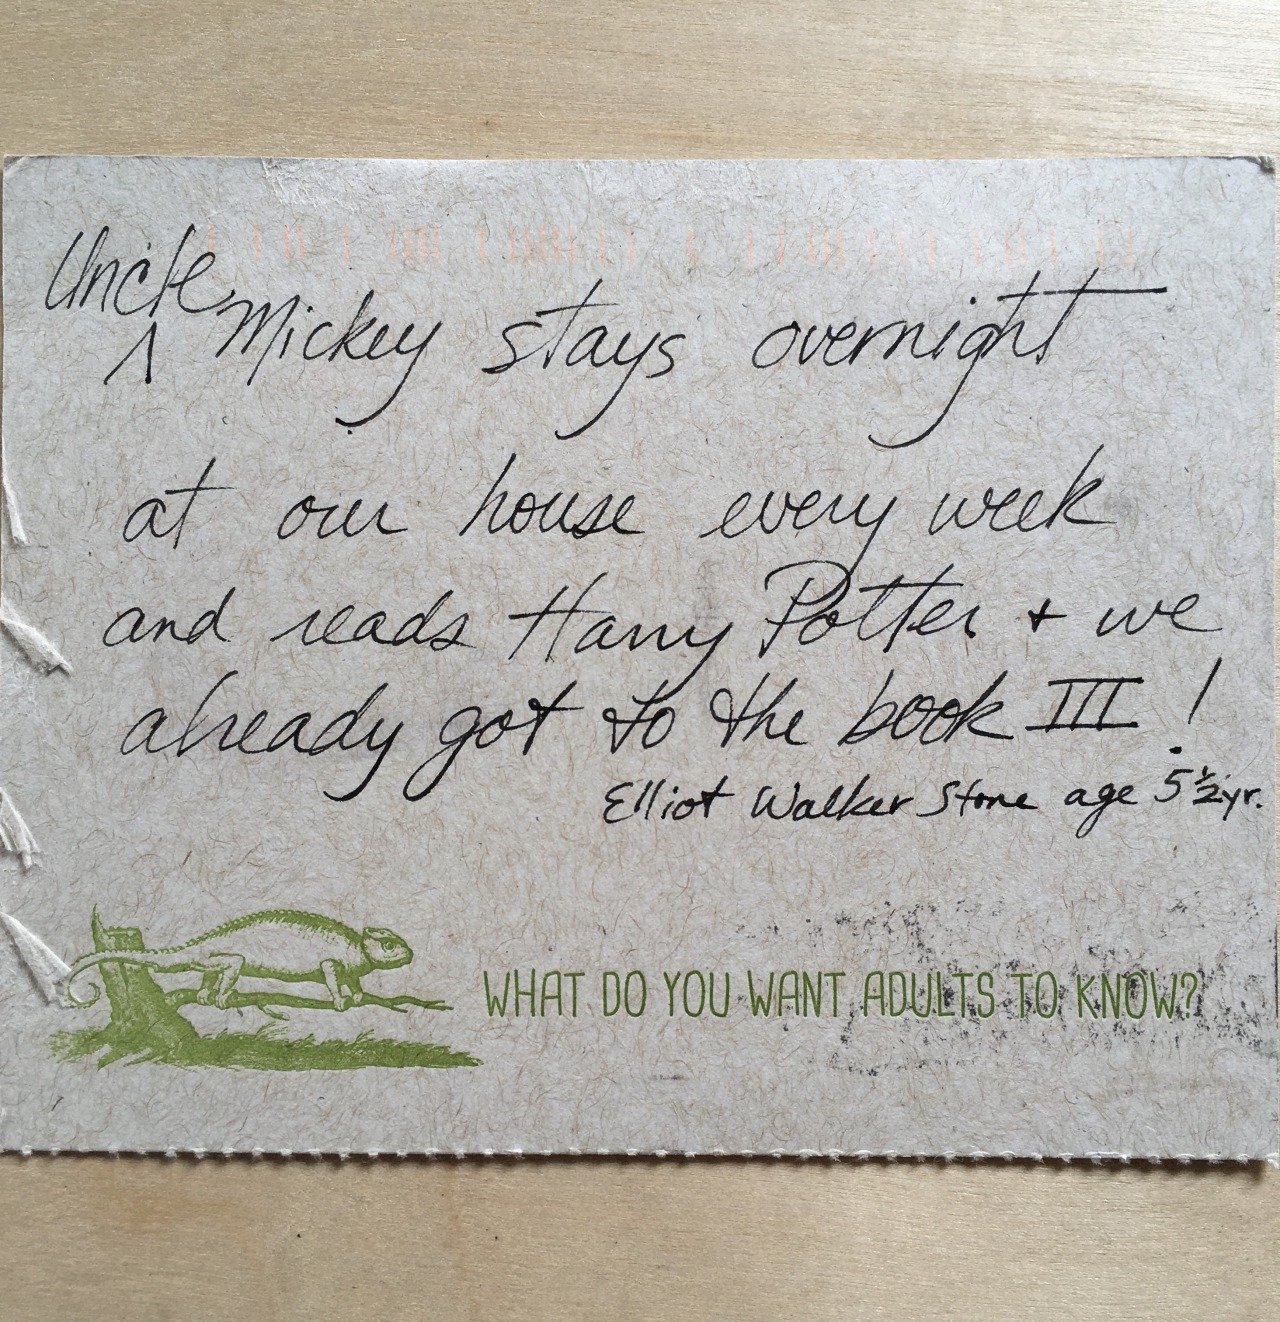 Uncle
^ Mickey stays overnight
at our house every week
and reads Harry Potter + we
already got to the book III !
Elliot Walker Stone age 5 1/2 yr.
WHAT DO YOU WANT ADULTS TO KNOW?